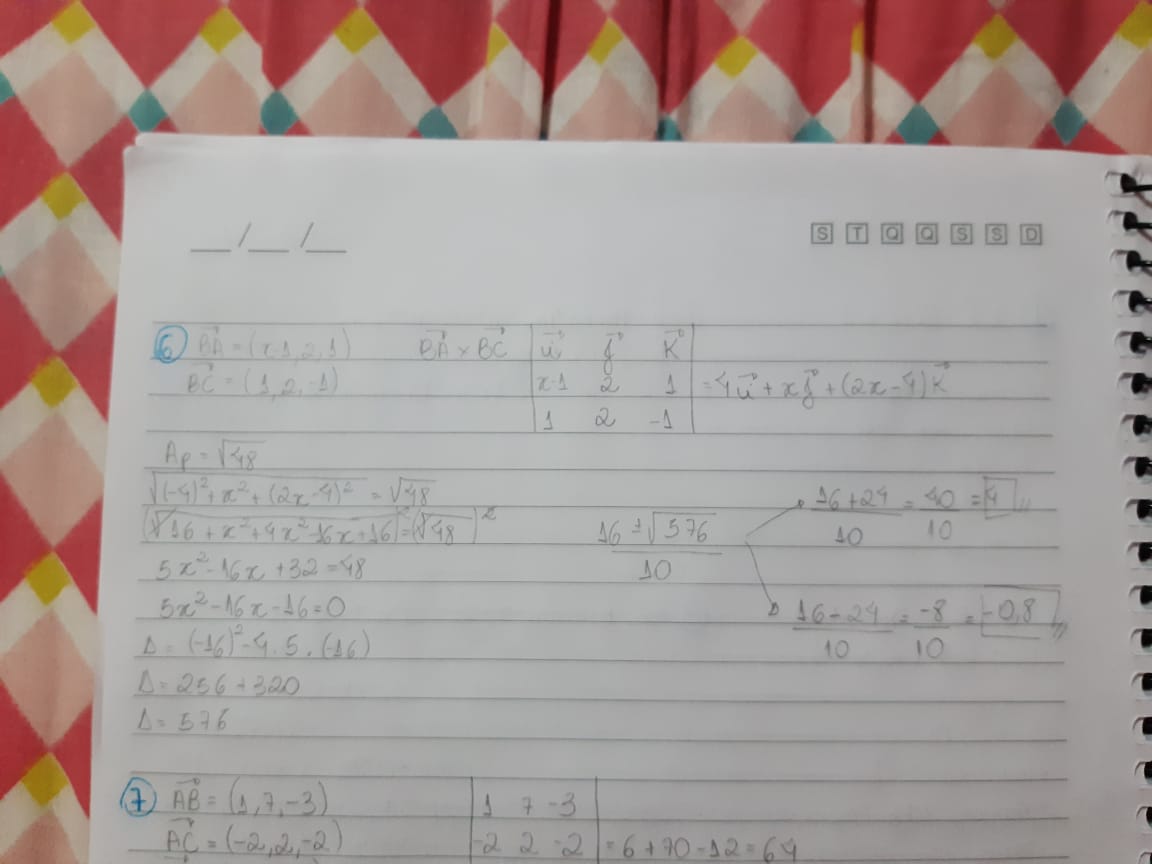 __/__/__ S T Q Q S S D
6 BA = (x-1, 2, 1) BA x BC | u j K |
BC = (1, 2, -1) | x-1 2 1 | = 4u + xj + (2x-4)K
| 1 2 -1 |
Ap = √48
√(-4)² + x² + (2x-4)² = √48
(√16 + x² + 4x² - 16x + 16) = (√48)²
5x² - 16x + 32 = 48
5x² - 16x - 16 = 0
Δ = (-16)² - 4 . 5 . (-16)
Δ = 256 + 320
Δ = 576
16 ± √576 / 10
16 + 24 / 10 = 40 / 10 = 4
16 - 24 / 10 = -8 / 10 = -0,8
7 AB = (1, 7, -3) | 1 7 -3 |
AC = (-2, 2, -2) | -2 2 -2 | = 6 + 70 - 12 = 64